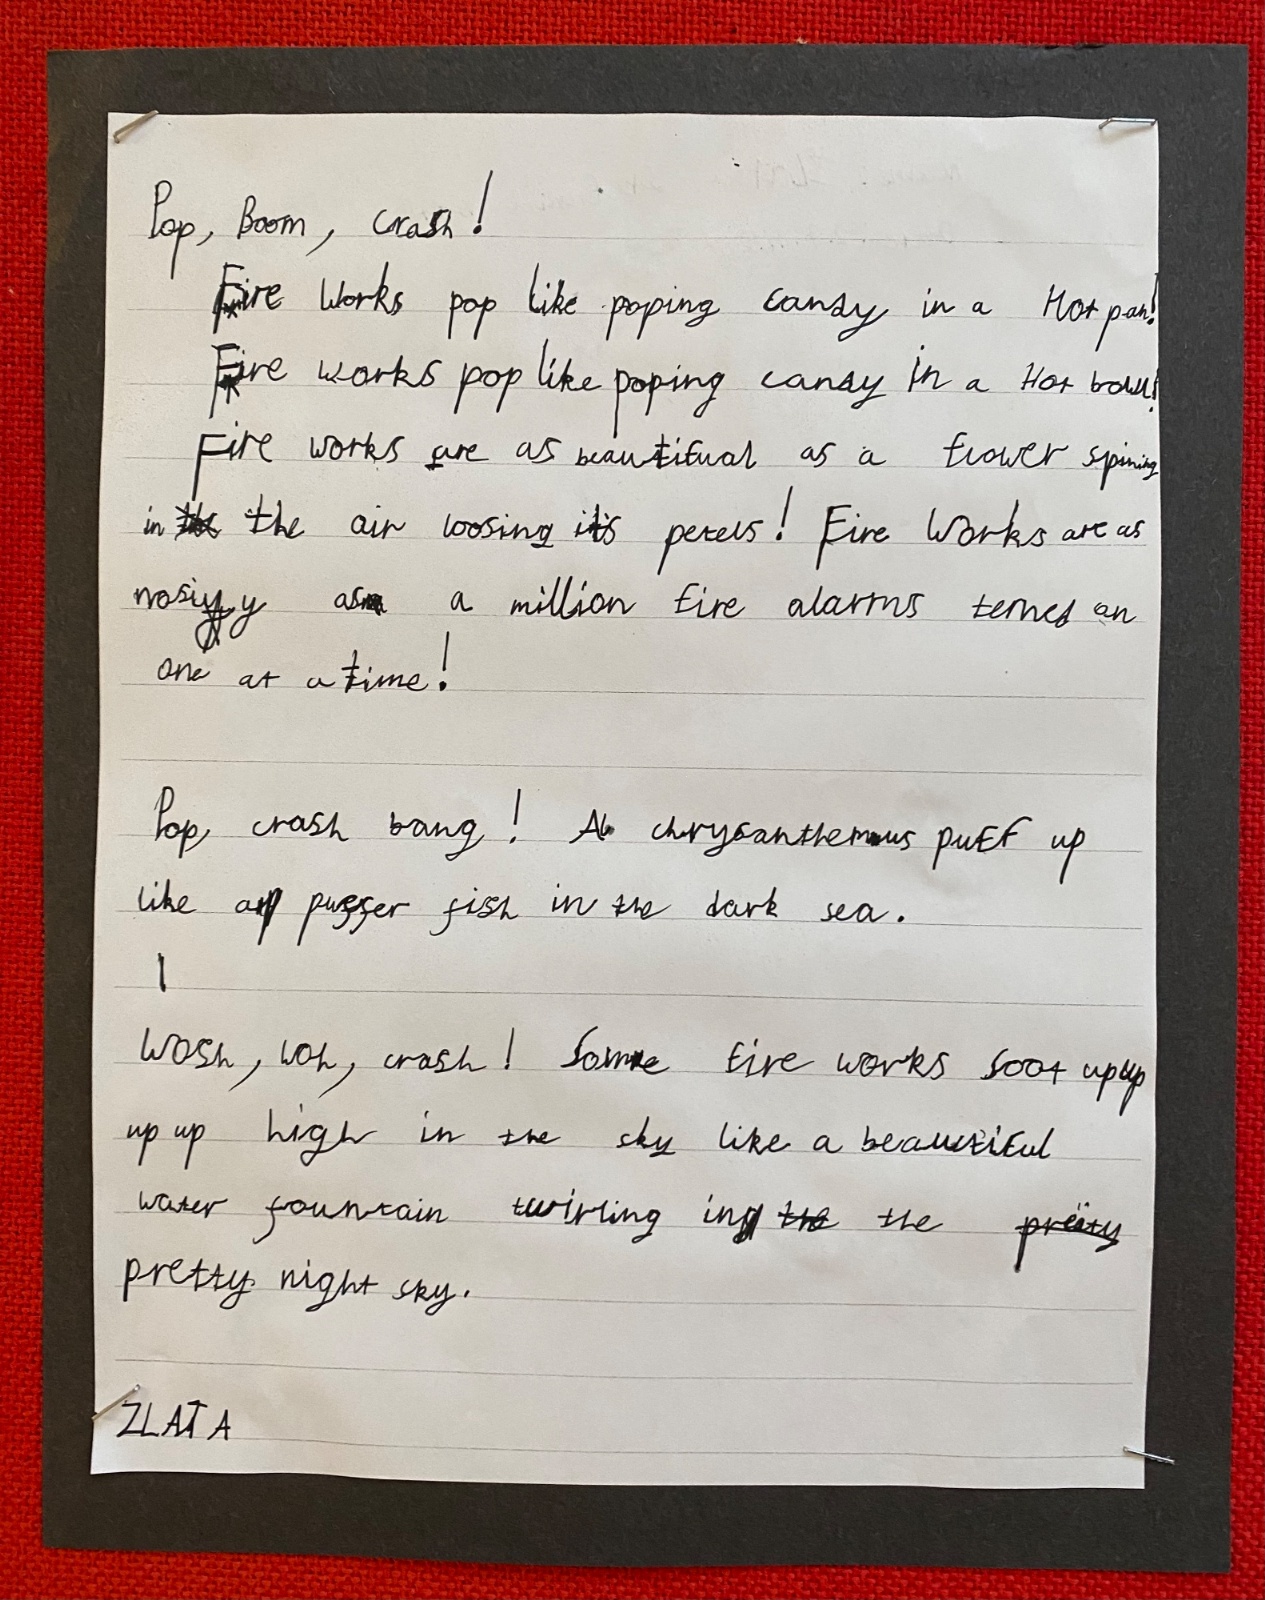 Pop, Boom, crash!
Fire works pop like poping candy in a Hot pan!
Fire works pop like poping candy in a Hot bowl!
Fire works are as beautifual as a flower spining
in the air loosing it's petels! Fire Works are as
nosiy as a million fire alarms terned on
one at a time!
Pop, crash bang! A chrysanthemus puff up
like a puffer fish in the dark sea.
Wosh, woh, crash! Some fire works soot up up
up up high in the sky like a beautiful
water fountain twirling in the
pretty night sky.
ZLATA